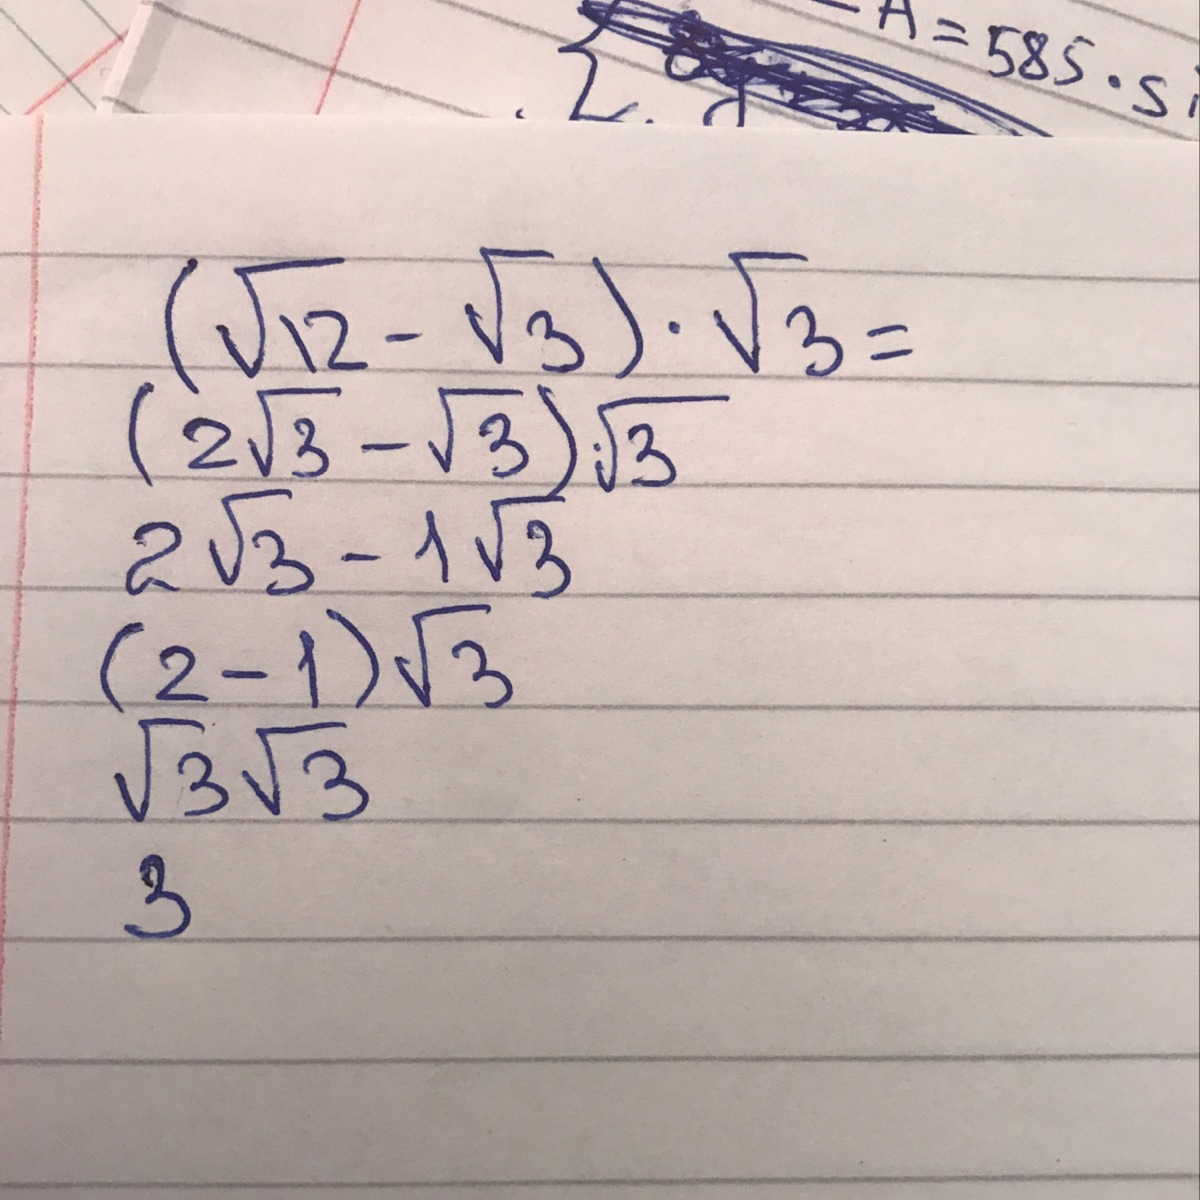 A = 585 · si
(√12 - √3) · √3 =
(2√3 - √3) · √3
2√3 - 1√3
(2 - 1)√3
√3√3
3